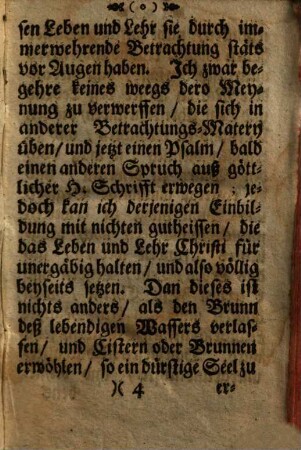 (o)
sen Leben und Lehr sie durch im-
merwehrende Betrachtung stäts
vor Augen haben. Ich zwar be-
gehre keines weegs dero Mey-
nung zu verwerffen / die sich in
anderer Betrachtungs-Matery
üben / und jetzt einen Psalm / bald
einen anderen Spruch auß gött-
licher H. Schrifft erwegen ; je-
doch kan ich derjenigen Einbil-
dung mit nichten gutheissen / die
das Leben und Lehr Christi für
unergäbig halten / und also völlig
beyseits setzen. Dan dieses ist
nichts anders / als den Brunn
deß lebendigen Wassers verlas-
sen / und Cistern oder Brunnen
erwöhlen / so ein dürstige Seel zu
)( 4 er-